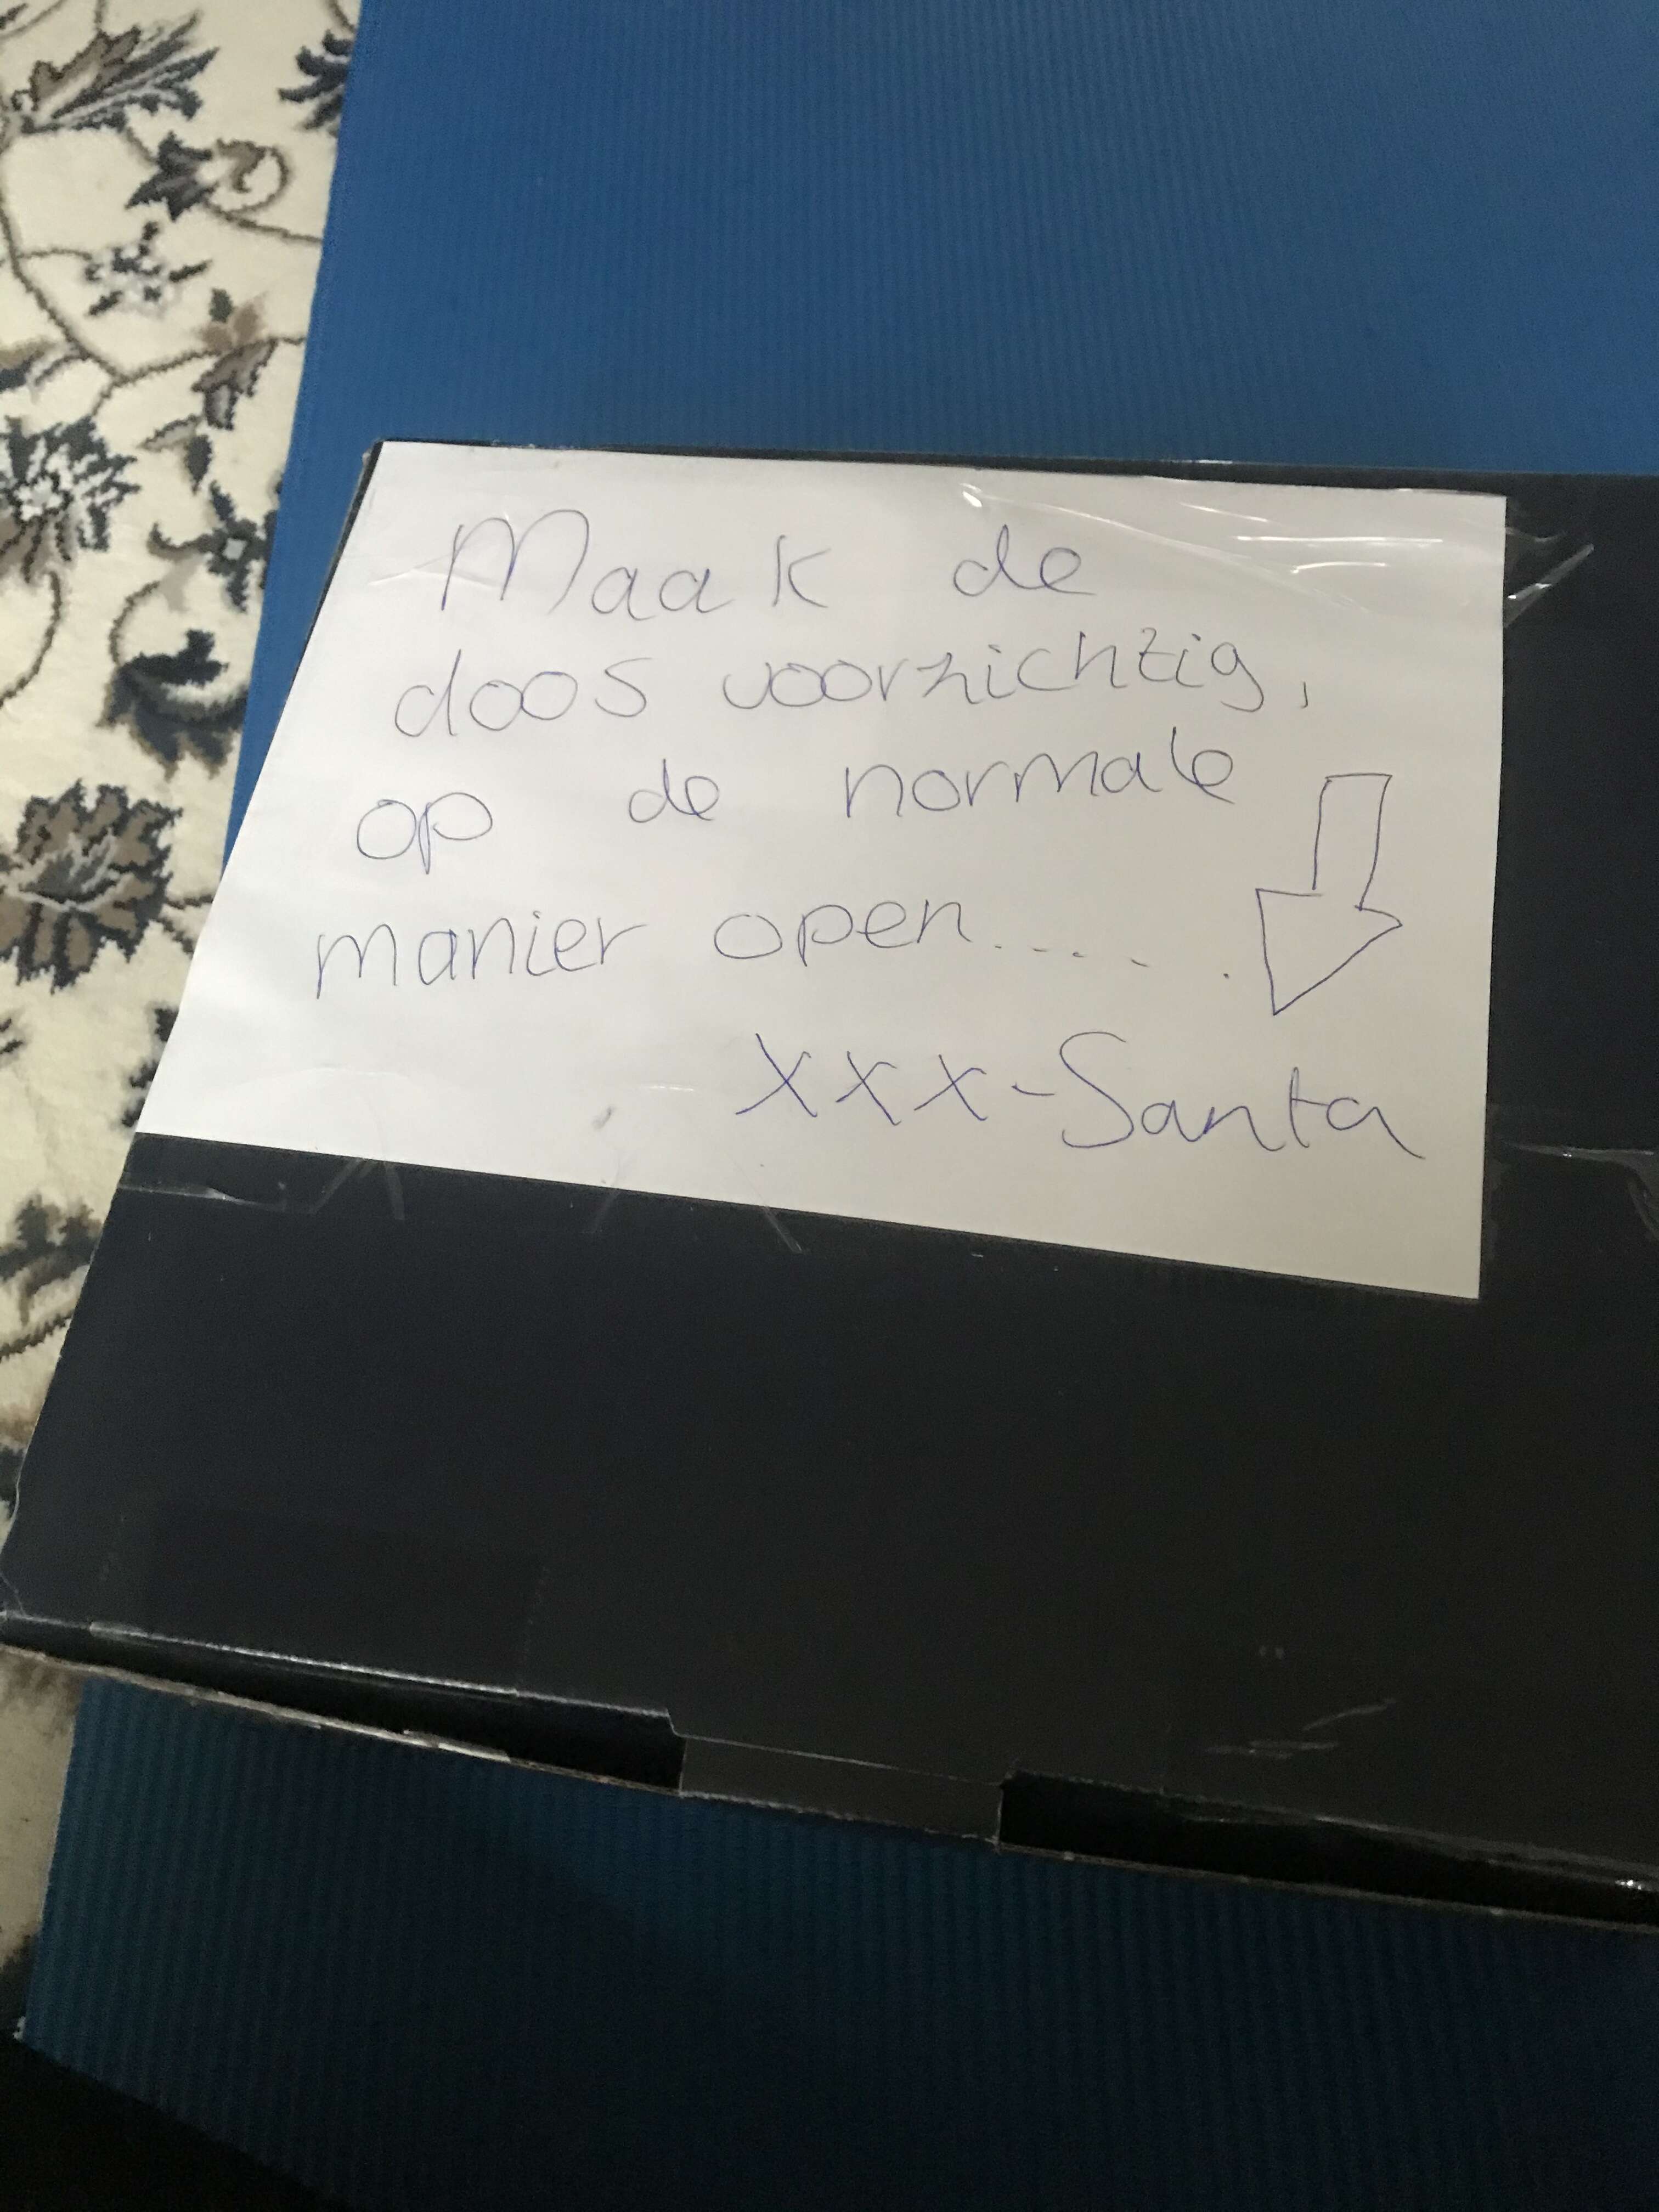 Maak de
doos voorzichtig,
op de normale
manier open......
xxx-Santa